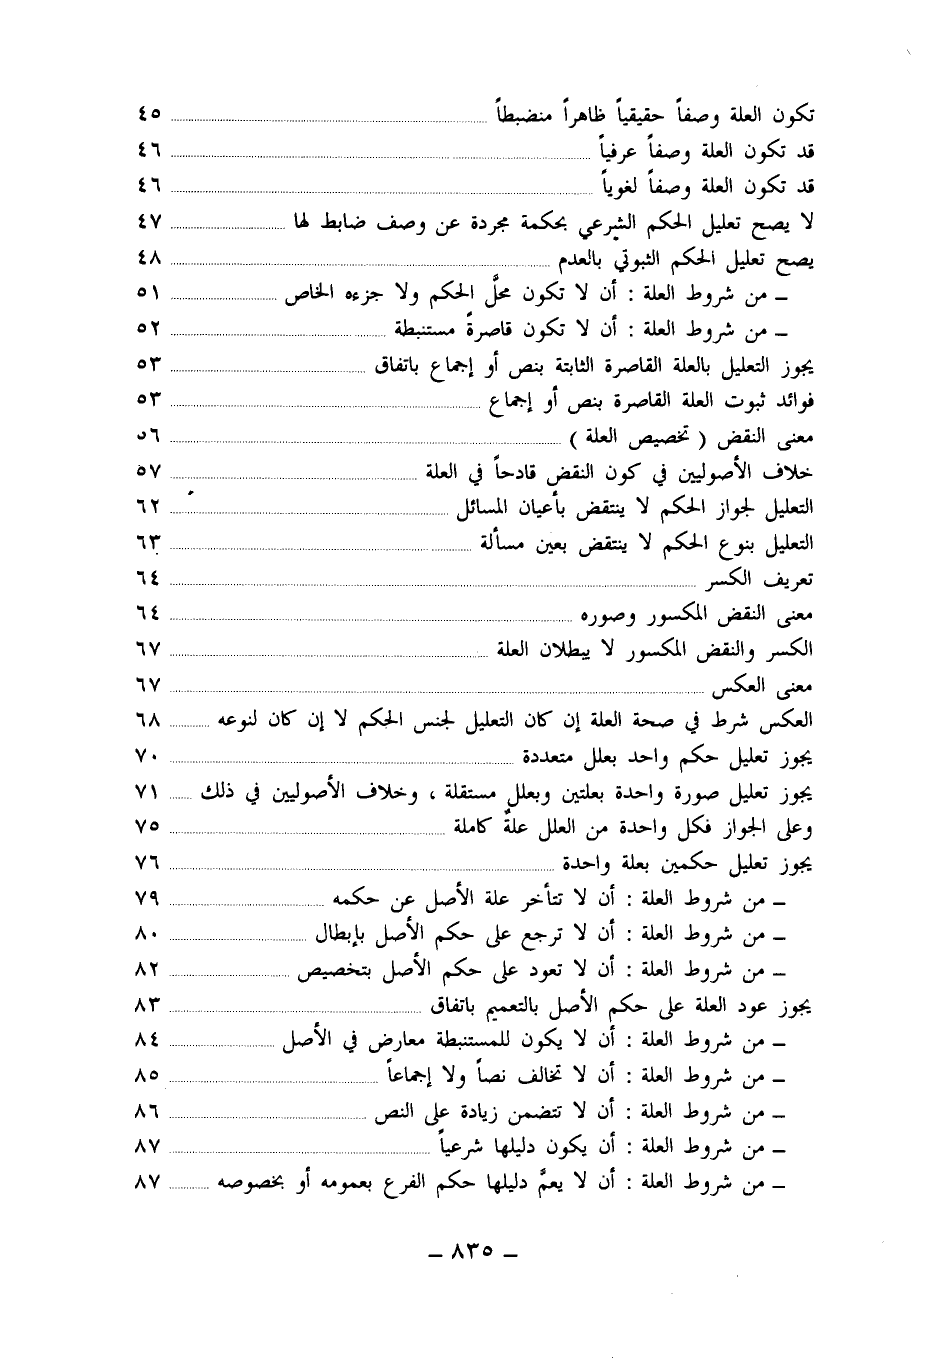 تكون العلة وصفاً حقيقياً ظاهراً منضبطاً ٤٥
قد تكون العلة وصفاً عرفياً ٤٦
قد تكون العلة وصفاً لغوياً ٤٦
لا يصح تعليل الحكم الشرعي بحكمة مجردة عن وصف ضابط لها ٤٧
يصح تعليل الحكم الثبوتي بالعدم ٤٨
ـ من شروط العلة : أن لا تكون محلَّ الحكم ولا جزءه الخاص ٥١
ـ من شروط العلة : أن لا تكون قاصرةً مستنبطة ٥٢
يجوز التعليل بالعلة القاصرة الثابتة بنص أو إجماع باتفاق ٥٣
فوائد ثبوت العلة القاصرة بنص أو إجماع ٥٣
معنى النقض ( تخصيص العلة ) ٥٦
خلاف الأصوليين في كون النقض قادحاً في العلة ٥٧
التعليل لجواز الحكم لا ينتقض بأعيان المسائل ٦٢
التعليل بنوع الحكم لا ينتقض بعين مسألة ٦٣
تعريف الكسر ٦٤
معنى النقض المكسور وصوره ٦٤
الكسر والنقض المكسور لا يبطلان العلة ٦٧
معنى العكس ٦٧
العكس شرط في صحة العلة إن كان التعليل لجنس الحكم لا إن كان لنوعه ٦٨
يجوز تعليل حكم واحد بعلل متعددة ٧٠
يجوز تعليل صورة واحدة بعلتين وبعلل مستقلة ، وخلاف الأصوليين في ذلك ٧١
وعلى الجواز فكل واحدة من العلل علةٌ كاملة ٧٥
يجوز تعليل حكمين بعلة واحدة ٧٦
ـ من شروط العلة : أن لا تتأخر علة الأصل عن حكمه ٧٩
ـ من شروط العلة : أن لا ترجع على حكم الأصل بإبطال ٨٠
ـ من شروط العلة : أن لا تعود على حكم الأصل بتخصيص ٨٢
يجوز عود العلة على حكم الأصل بالتعميم باتفاق ٨٣
ـ من شروط العلة : أن لا يكون للمستنبطة معارض في الأصل ٨٤
ـ من شروط العلة : أن لا تخالف نصاً ولا إجماعاً ٨٥
ـ من شروط العلة : أن لا تتضمن زيادة على النص ٨٦
ـ من شروط العلة : أن يكون دليلها شرعياً ٨٧
ـ من شروط العلة : أن لا يعمَّ دليلها حكم الفرع بعمومه أو بخصوصه ٨٧
ـ ٨٣٥ ـ